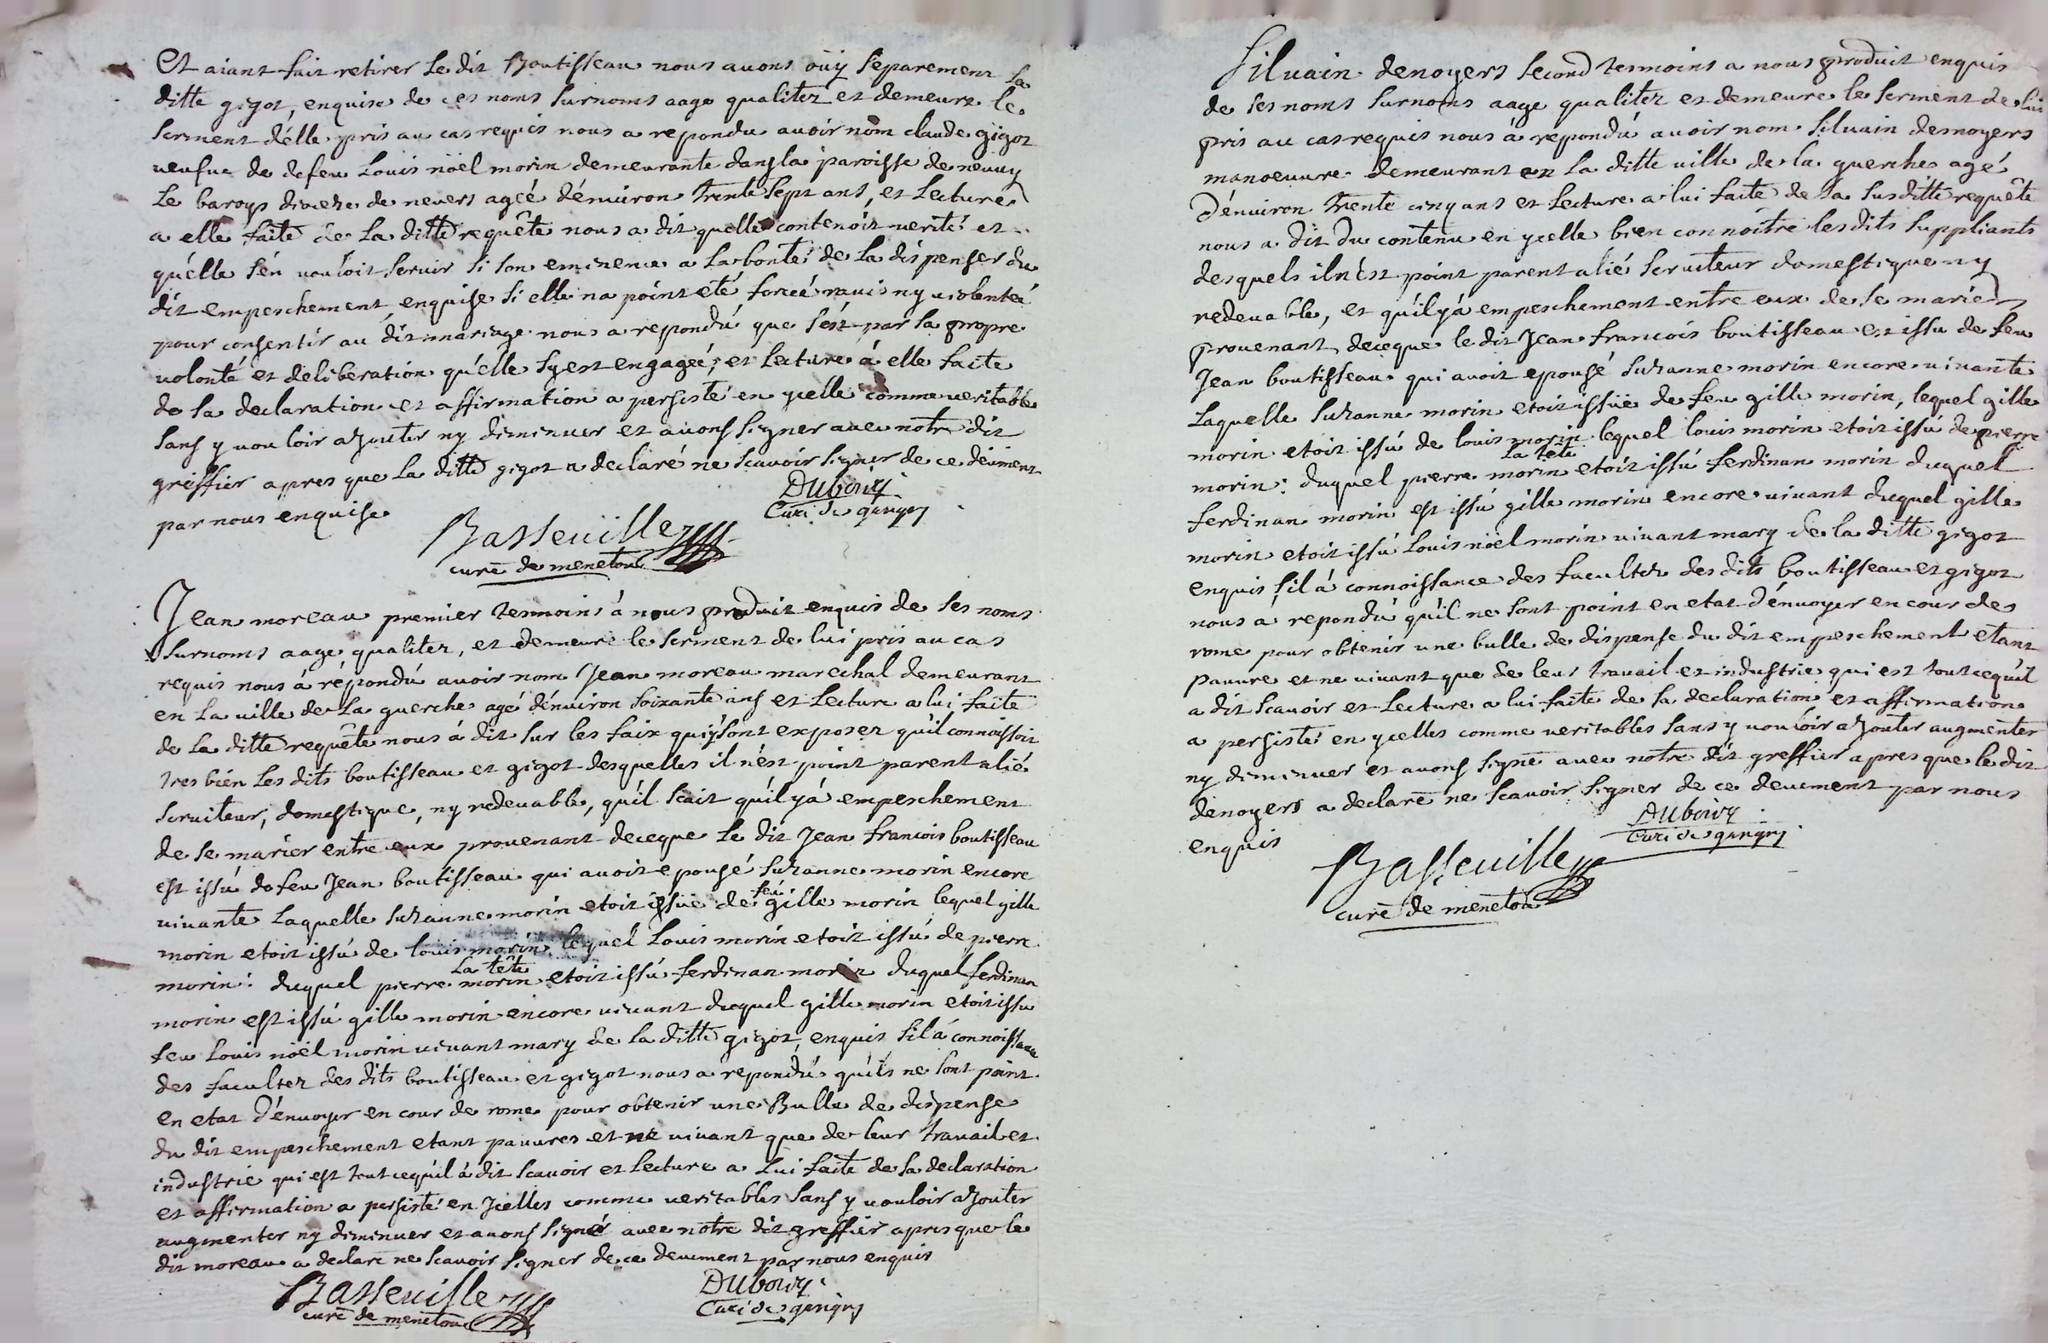 Et aiant fait retirer le dit Boutisseau nous avons oüy séparement la
ditte gigot, enquise de ces noms surnoms aage qualitez et demeure le
serment d'élle pris au cas requis nous a repondu avoir nom claude gigot
veufue de defeu Loüis nöel morin demeurante dans la paroisse de neuuy
Le baroys diocéze de nevers agéé d'énuiron trente sept ans, et Lecture
a elle faite de La ditte requête nous a dit quelle contenoit verité et
qu'élle s'én vouloit seruir si son eminence a la bonté de la dispenser du
dit empeschement, enquise si elle na point eté forcéé rauis ny violentéé
pour consentir au dit mariage nous a repondu que s'ést par sa propre
volonté et déliberation qu'élle sy est engagéé, et Lecture á elle faite
de sa declaration et affirmation a persisté en ycelle comme veritable
sans y vouloir ajouter ny diminuer et auons signer auec notre dit
greffier apres que la ditte gigot a declaré ne scavoir signer de ce deüment
par nous enquise
Dubois
Curé de giuigny
Basseuille
curé de menetou
Jean moreau premier tesmoins á nous produit enquis de ses noms
surnoms aage qualitez, et demeure le serment de lui pris au cas
requis nous á répondú avoir nom Jean moreau marechal demeurant
en La ville de La guerche agé d'énuiron soixante ans et Lecture a lui faite
de La ditte requête nous á dit sur les faix quiy sont exposez qu'il connoissoit
tres bién Les dits boutisseau et gigot desquelles il n'ést point parent alié
seruiteur, domestique, ny redeuable, qu'il scait qu'il y á empeschement
de se marier entre eux prouenant de ceque le dit Jean francois boutisseau
est issú de feu Jean boutisseau qui avoit epousé suzanne morin encore
viuante Laquelle suzanne morin etoit issüe de feu gille morin lequel gille
morin etoit issú de louis morin lequel Louis morin etoit issú de pierre
morin: duquel pierre morin la tête etoit issú ferdinan morin duquel ferdinan
morin est issú gille morin encore viuant duquel gille morin etoit issu
feu Louis nöel morin viuant mary de la ditte gigot, enquis s'il á connoissance
des facultez des dits boutisseau et gigot nous a repondú qu'ils ne sont point
en etat d'énuoyer en cour de rome pour obtenir une Bulle de dispense
du dit empeschement etant pauures et ne viuant que de leur trauail et
industrie qui est tout cequ'il á dit scauoir et Lecture a Lui faite de sa declaration
et affirmation a persisté en Jcelles comme veritables sans y vouloir ajouter
augmenter ny diminuer et auons signé auec notre dit greffier apres que le
dit moreau a declaré ne scauoir signer de ce deuement par nous enquis
Basseuille
curé de menetou
Dubois
Curé de giuigny
Siluain denoyers second tesmoins a nous produit enquis
de ses noms surnoms aage qualitez et demeure le serment de lui
pris au cas requis nous á répondú avoir nom siluain desnoyers
manoeuure demeurant en La ditte ville de la guerche agé
d'énuiron trente cinq ans et Lecture a lui faite de la susditte requête
nous a dit du contenu en ycelle bien connoitre les dits suppliants
desquels il n'ést point parent alié seruiteur domestique ny
redeuable, et qu'il y á empeschement entre eux de se marier
prouenant deceque le dit Jean francois boutisseau est issu de feu
Jean boutisseau qui avoit epousé suzanne morin encore viuante
Laquelle suzanne morin etoit issüe de feu gille morin, lequel gille
morin etoit issú de louis morin lequel louis morin etoit issú de pierre
morin: duquel pierre morin la tête etoit issú ferdinan morin duquel
ferdinan morin est issú gille morin encore viuant duquel gille
morin etoit issú Louis nöel morin viuant mary de la ditte gigot
enquis s'il á connoissance des facultez des dits boutisseau et gigot
nous á répondú qu'il ne sont point en etat d'énuoyer en cour de
rome pour obtenir une bulle de dispense du dit empeschement etant
pauure et ne viuant que de leur trauail et industrie qui est tout cequ'il
a dit scauoir et Lecture a lui faite de sa declaration et affirmation
a persisté en ycelles comme veritables sans y vouloir ajouter augmenter
ny diminuer et auons signé auec notre dit greffier apres que le dit
denoyers a declaré ne scauoir signer de ce deuement par nous
enquis
Dubois
Curé de giuigny
Basseuille
curé de menetou